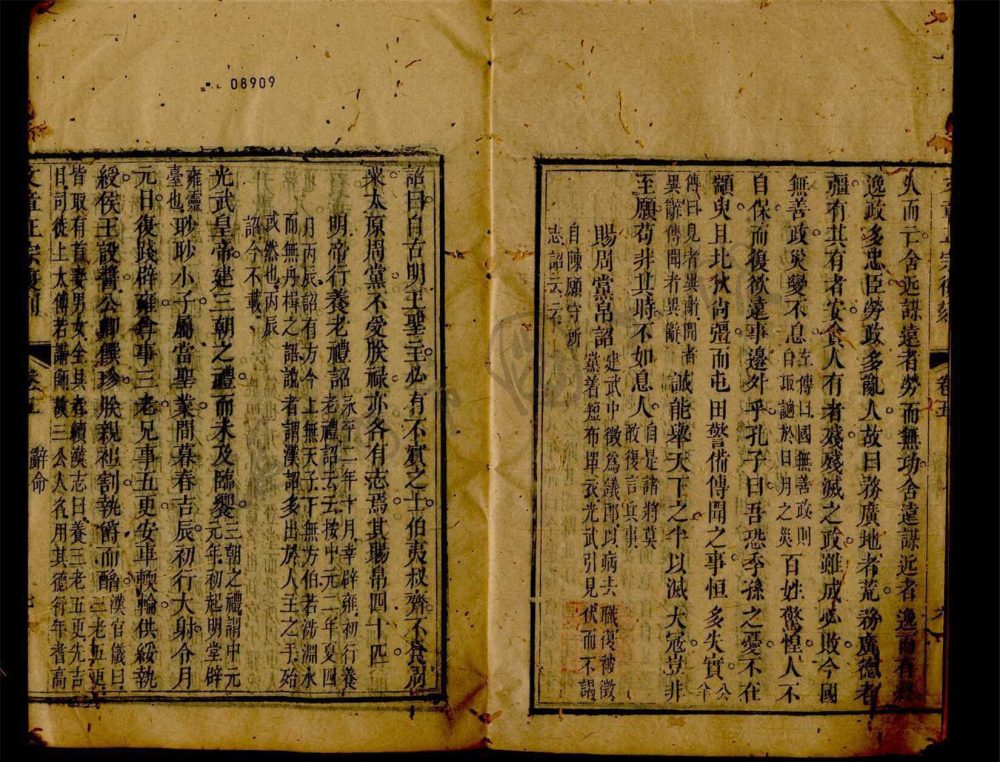 08909
人而亡舍近謀遠者勞而無功舍遠謀近者逸而有終
逸政多忠臣勞政多亂人故曰務廣地者荒務廣德者
彊有其有者安貪人有者殘殘滅之政雖成必敗今國
無善政災變不息左傳曰國無善政則自取謫於日月之災百姓驚惶人不
自保而復欲遠事邊外乎孔子曰吾恐季孫之憂不在
顓臾且北狄尚彊而屯田警備傳聞之事恒多失實公羊
傳曰見者異辭聞者異辭傳聞者異辭誠能舉天下之半以滅大寇豈非
至願苟非其時不如息人自是諸將莫敢復言兵事
賜周黨帛詔建武中徵爲議郎以病去職復被徵黨着短布單衣光武引見伏而不謁
自陳願守所志詔云云
詔曰自古明王聖主必有不賓之士伯夷叔齊不食周
粟太原周黨不受朕祿亦各有志焉其賜帛四十匹
明帝行養老禮詔永平二年十月幸辟雍初行養老禮詔云云按中元二年夏四
月丙辰詔有方今上無天子下無方伯若涉淵水
而無舟楫之詔說者謂漢詔多出於人主之手殆
或然也丙辰詔今不載
光武皇帝建三朝之禮而未及臨饗三朝之禮謂中元元年初起明堂辟
雍靈臺也眇眇小子屬當聖業間暮春吉辰初行大射令月
元日復踐辟雍尊事三老兄事五更安車輭輪供綏執
綬侯王設醬公卿饌珍朕親袒割執爵而酳漢官儀曰三老五更
皆取有首妻男女全具者續漢志曰養三老五更先吉
日司徒上太傅若講師故三公人名用其德行年耆高
文章正宗復刻
卷五
辭命
七
文章正宗復刻
卷五
六